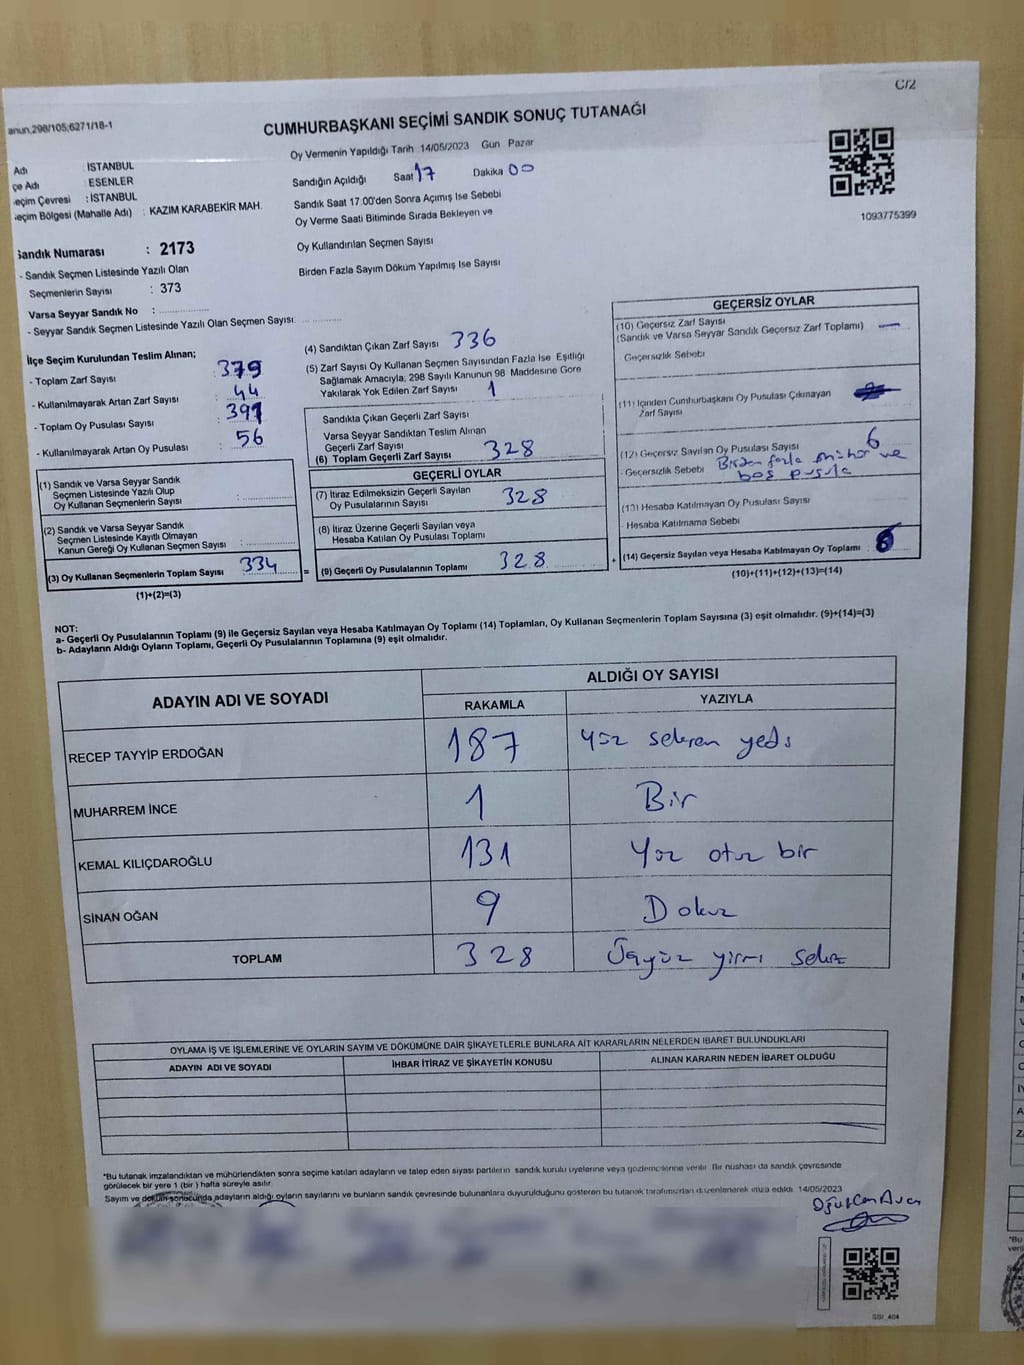 C/2
anun;298/105;6271/18-1
CUMHURBAŞKANI SEÇİMİ SANDIK SONUÇ TUTANAĞI
Oy Vermenin Yapıldığı Tarih 14/05/2023 Gün Pazar
Adı İSTANBUL
çe Adı : ESENLER
eçim Çevresi : İSTANBUL
eçim Bölgesi (Mahalle Adı) : KAZIM KARABEKİR MAH.
Sandığın Açıldığı Saat 17 Dakika 00
Sandık Saat 17.00'den Sonra Açımış İse Sebebi
Oy Verme Saati Bitiminde Sırada Bekleyen ve
Oy Kullandırılan Seçmen Sayısı
Birden Fazla Sayım Döküm Yapılmış İse Sayısı
1093775399
Sandık Numarası : 2173
- Sandık Seçmen Listesinde Yazılı Olan
Seçmenlerin Sayısı : 373
Varsa Seyyar Sandık No :
- Seyyar Sandık Seçmen Listesinde Yazılı Olan Seçmen Sayısı:
İlçe Seçim Kurulundan Teslim Alınan;
- Toplam Zarf Sayısı : 379
- Kullanılmayarak Artan Zarf Sayısı : 44
- Toplam Oy Pusulası Sayısı : 391
- Kullanılmayarak Artan Oy Pusulası : 56
(1) Sandık ve Varsa Seyyar Sandık
Seçmen Listesinde Yazılı Olup
Oy Kullanan Seçmenlerin Sayısı :
(2) Sandık ve Varsa Seyyar Sandık
Seçmen Listesinde Kayıtlı Olmayan
Kanun Gereği Oy Kullanan Seçmen Sayısı :
(3) Oy Kullanan Seçmenlerin Toplam Sayısı 334 =
(1)+(2)=(3)
(4) Sandıktan Çıkan Zarf Sayısı 336
(5) Zarf Sayısı Oy Kullanan Seçmen Sayısından Fazla İse Eşitliği
Sağlamak Amacıyla, 298 Sayılı Kanunun 98 Maddesine Göre
Yakılarak Yok Edilen Zarf Sayısı 1
Sandıkta Çıkan Geçerli Zarf Sayısı
Varsa Seyyar Sandıktan Teslim Alınan
Geçerli Zarf Sayısı
(6) Toplam Geçerli Zarf Sayısı 328
GEÇERLİ OYLAR
(7) İtiraz Edilmeksizin Geçerli Sayılan
Oy Pusulalarının Sayısı 328
(8) İtiraz Üzerine Geçerli Sayılan veya
Hesaba Katılan Oy Pusulası Toplamı
(9) Geçerli Oy Pusulalarının Toplamı 328 +
GEÇERSİZ OYLAR
(10) Geçersiz Zarf Sayısı
(Sandık ve Varsa Seyyar Sandık Geçersiz Zarf Toplamı) —
Geçersizlik Sebebi
(11) İçinden Cumhurbaşkanı Oy Pusulası Çıkmayan
Zarf Sayısı
(12) Geçersiz Sayılan Oy Pusulası Sayısı 6
Geçersizlik Sebebi Birden fazla mühür ve
boş pusula
(13) Hesaba Katılmayan Oy Pusulası Sayısı
Hesaba Katılmama Sebebi
(14) Geçersiz Sayılan veya Hesaba Katılmayan Oy Toplamı 6
(10)+(11)+(12)+(13)=(14)
NOT:
a- Geçerli Oy Pusulalarının Toplamı (9) ile Geçersiz Sayılan veya Hesaba Katılmayan Oy Toplamı (14) Toplamları, Oy Kullanan Seçmenlerin Toplam Sayısına (3) eşit olmalıdır. (9)+(14)=(3)
b- Adayların Aldığı Oyların Toplamı, Geçerli Oy Pusulalarının Toplamına (9) eşit olmalıdır.
ADAYIN ADI VE SOYADI ALDIĞI OY SAYISI
RAKAMLA YAZIYLA
RECEP TAYYİP ERDOĞAN 187 Yüz seksen yedi
MUHARREM İNCE 1 Bir
KEMAL KILIÇDAROĞLU 131 Yüz otuz bir
SİNAN OĞAN 9 Dokuz
TOPLAM 328 Üçyüz yirmi sekiz
OYLAMA İŞ VE İŞLEMLERİNE VE OYLARIN SAYIM VE DÖKÜMÜNE DAİR ŞİKAYETLERLE BUNLARA AİT KARARLARIN NELERDEN İBARET BULUNDUKLARI
ADAYIN ADI VE SOYADI İHBAR İTİRAZ VE ŞİKAYETİN KONUSU ALINAN KARARIN NEDEN İBARET OLDUĞU
*Bu tutanak imzalandıktan ve mühürlendikten sonra seçime katılan adayların ve talep eden siyasi partilerin sandık kurulu üyelerine veya gözlemcilerine verilir. Bir nüshası da sandık çevresinde
görülecek bir yere 1 (bir) hafta süreyle asılır.
Sayım ve döküm sonucunda adayların aldığı oyların sayılarını ve bunların sandık çevresinde bulunanlara duyurulduğunu gösteren bu tutanak tarafımızdan düzenlenerek imza edildi. 14/05/2023
SSI_404